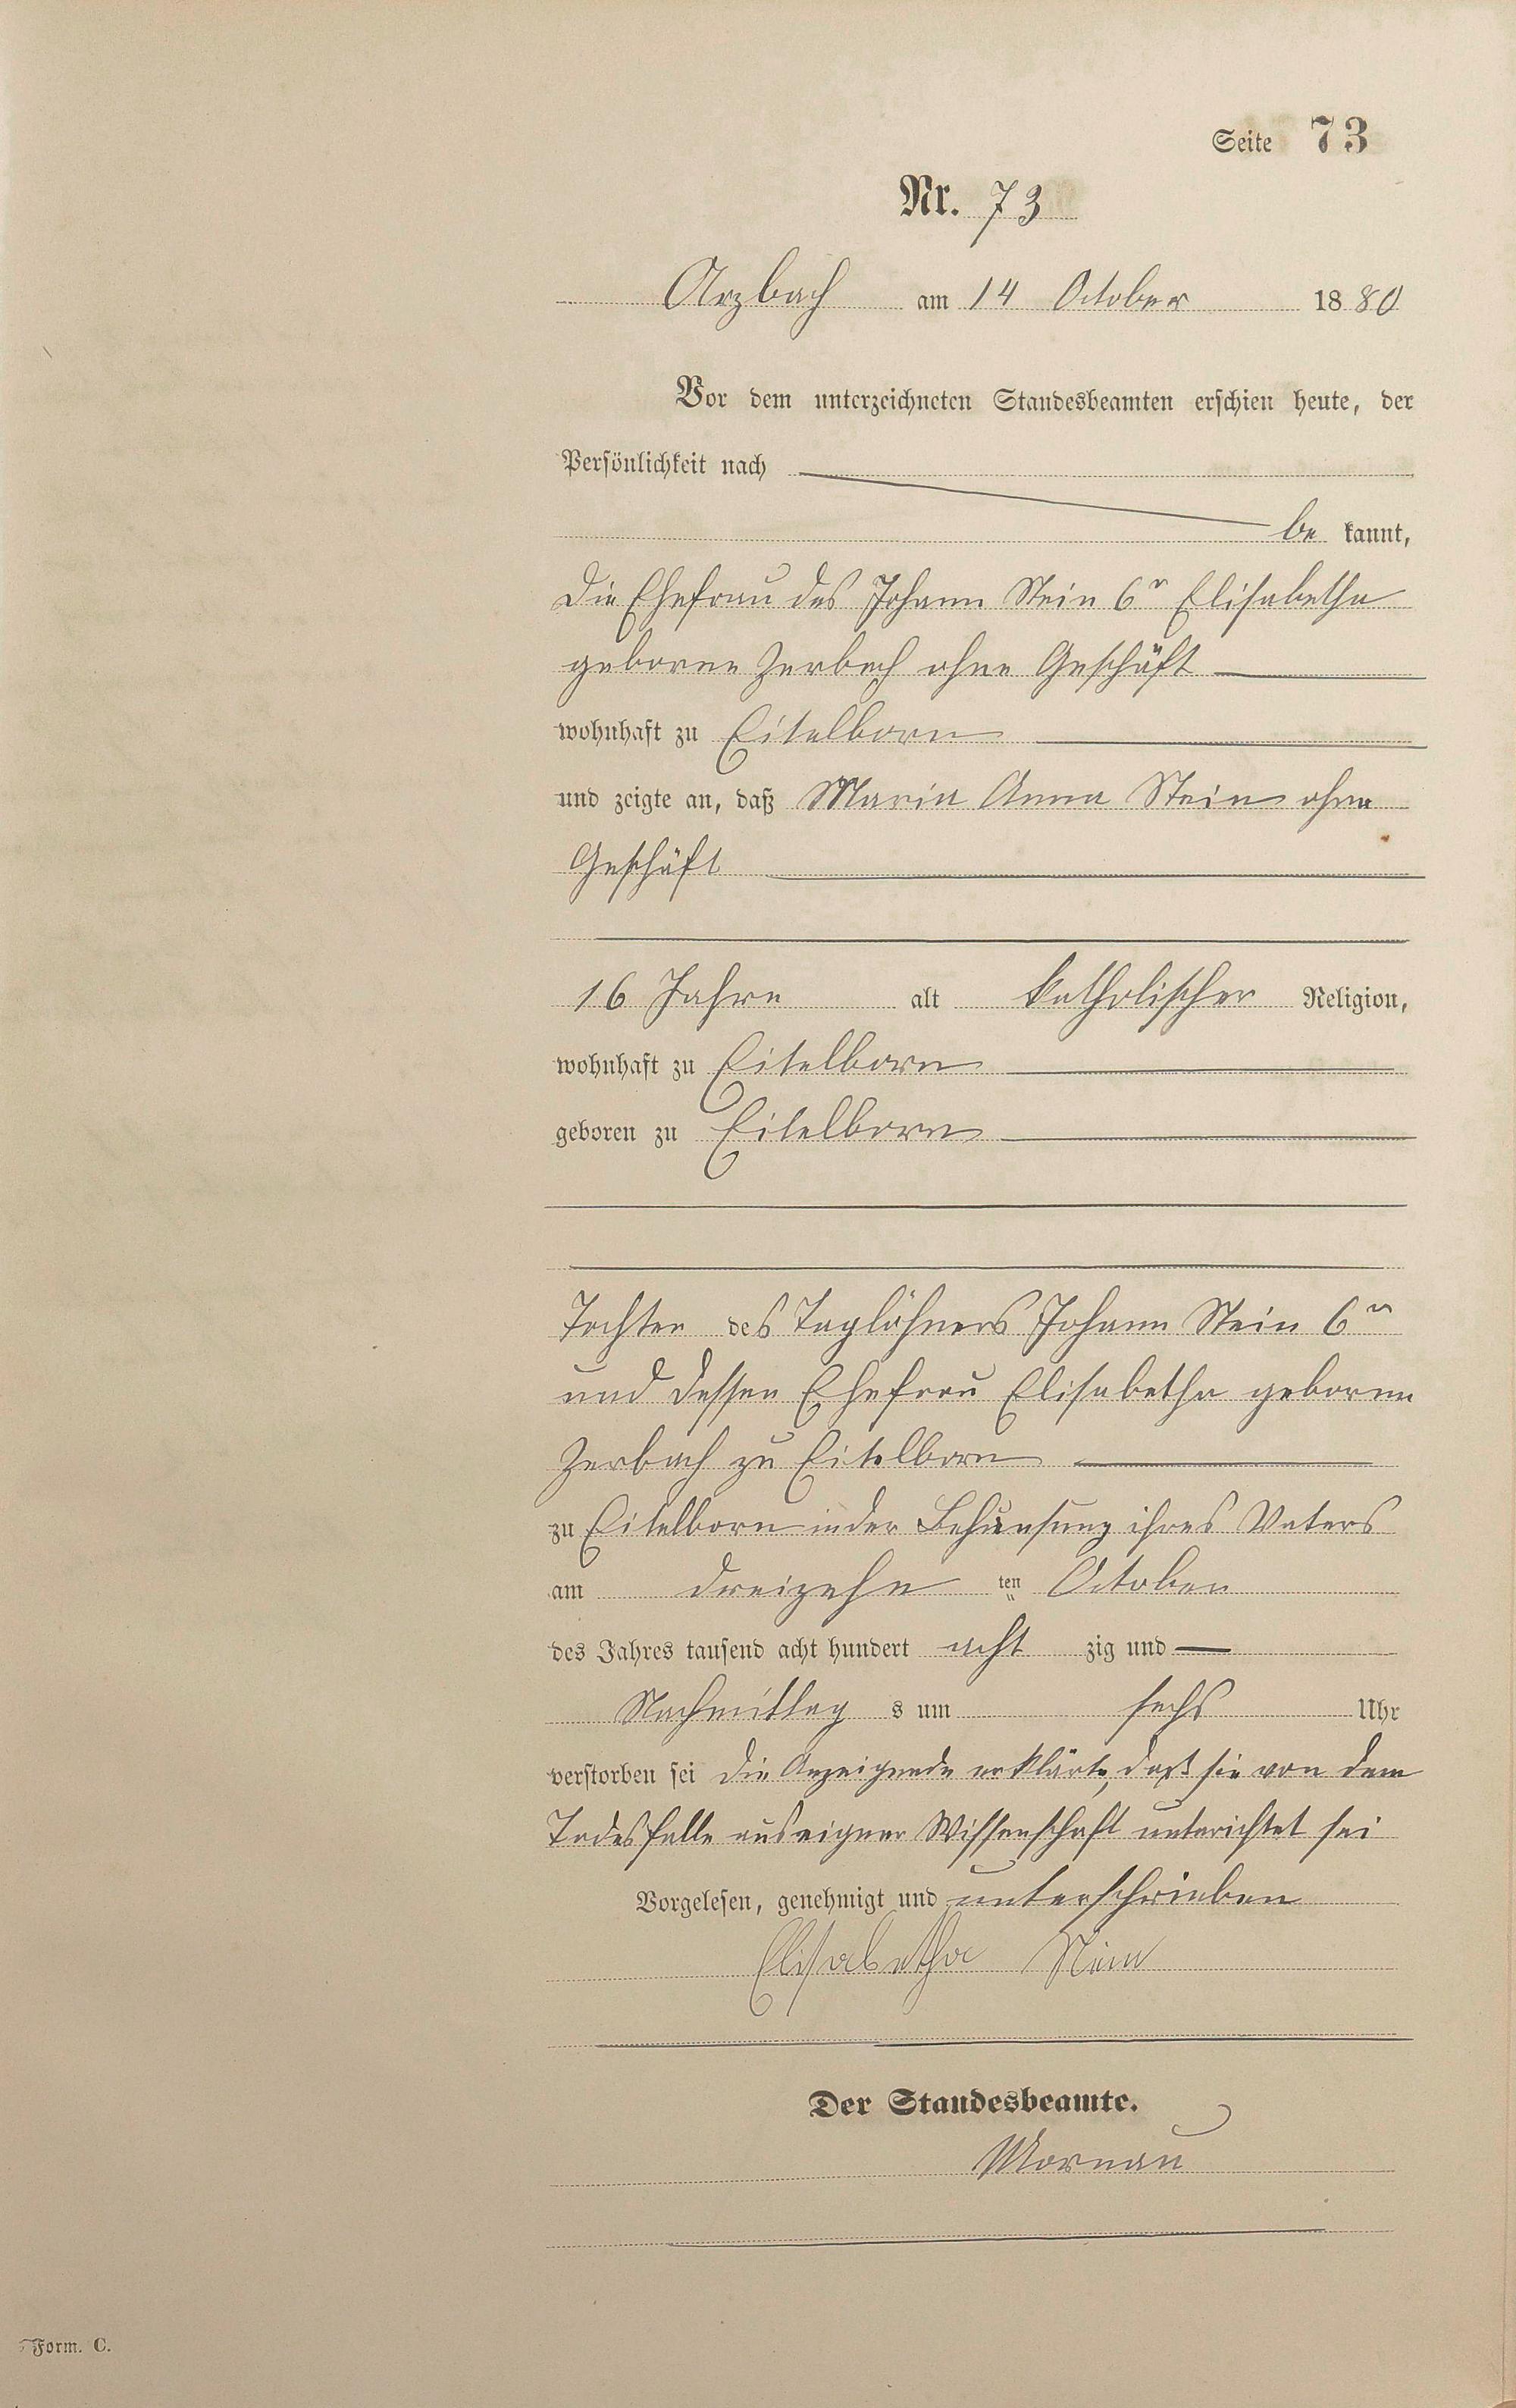 Seite 73
Nr. 73
Arzbach am 14 October 1880
Vor dem unterzeichneten Standesbeamten erschien heute, der
Persönlichkeit nach
be kannt,
die Ehefrau des Johann Stein 6r Elisabetha
geborne Zerbach ohne Geschäft
wohnhaft zu Eitelborn
und zeigte an, daß Maria Anna Stein ohne
Geschäft
16 Jahre alt katholischer Religion,
wohnhaft zu Eitelborn
geboren zu Eitelborn
Tochter des Taglöhners Johann Stein 6r
und dessen Ehefrau Elisabetha geborne
Zerbach zu Eitelborn
zu Eitelborn in der Behausung ihres Vaters
am dreizehn ten October
des Jahres tausend acht hundert acht zig und
Nachmittag s um sechs Uhr
verstorben sei die Anzeigende erklärte, daß sie von dem
Todesfalle aus eigner Wissenschaft unterichtet sei
Vorgelesen, genehmigt und unterschrieben
Elisabetha Stein
Der Standesbeamte.
Mornau
Form. C.